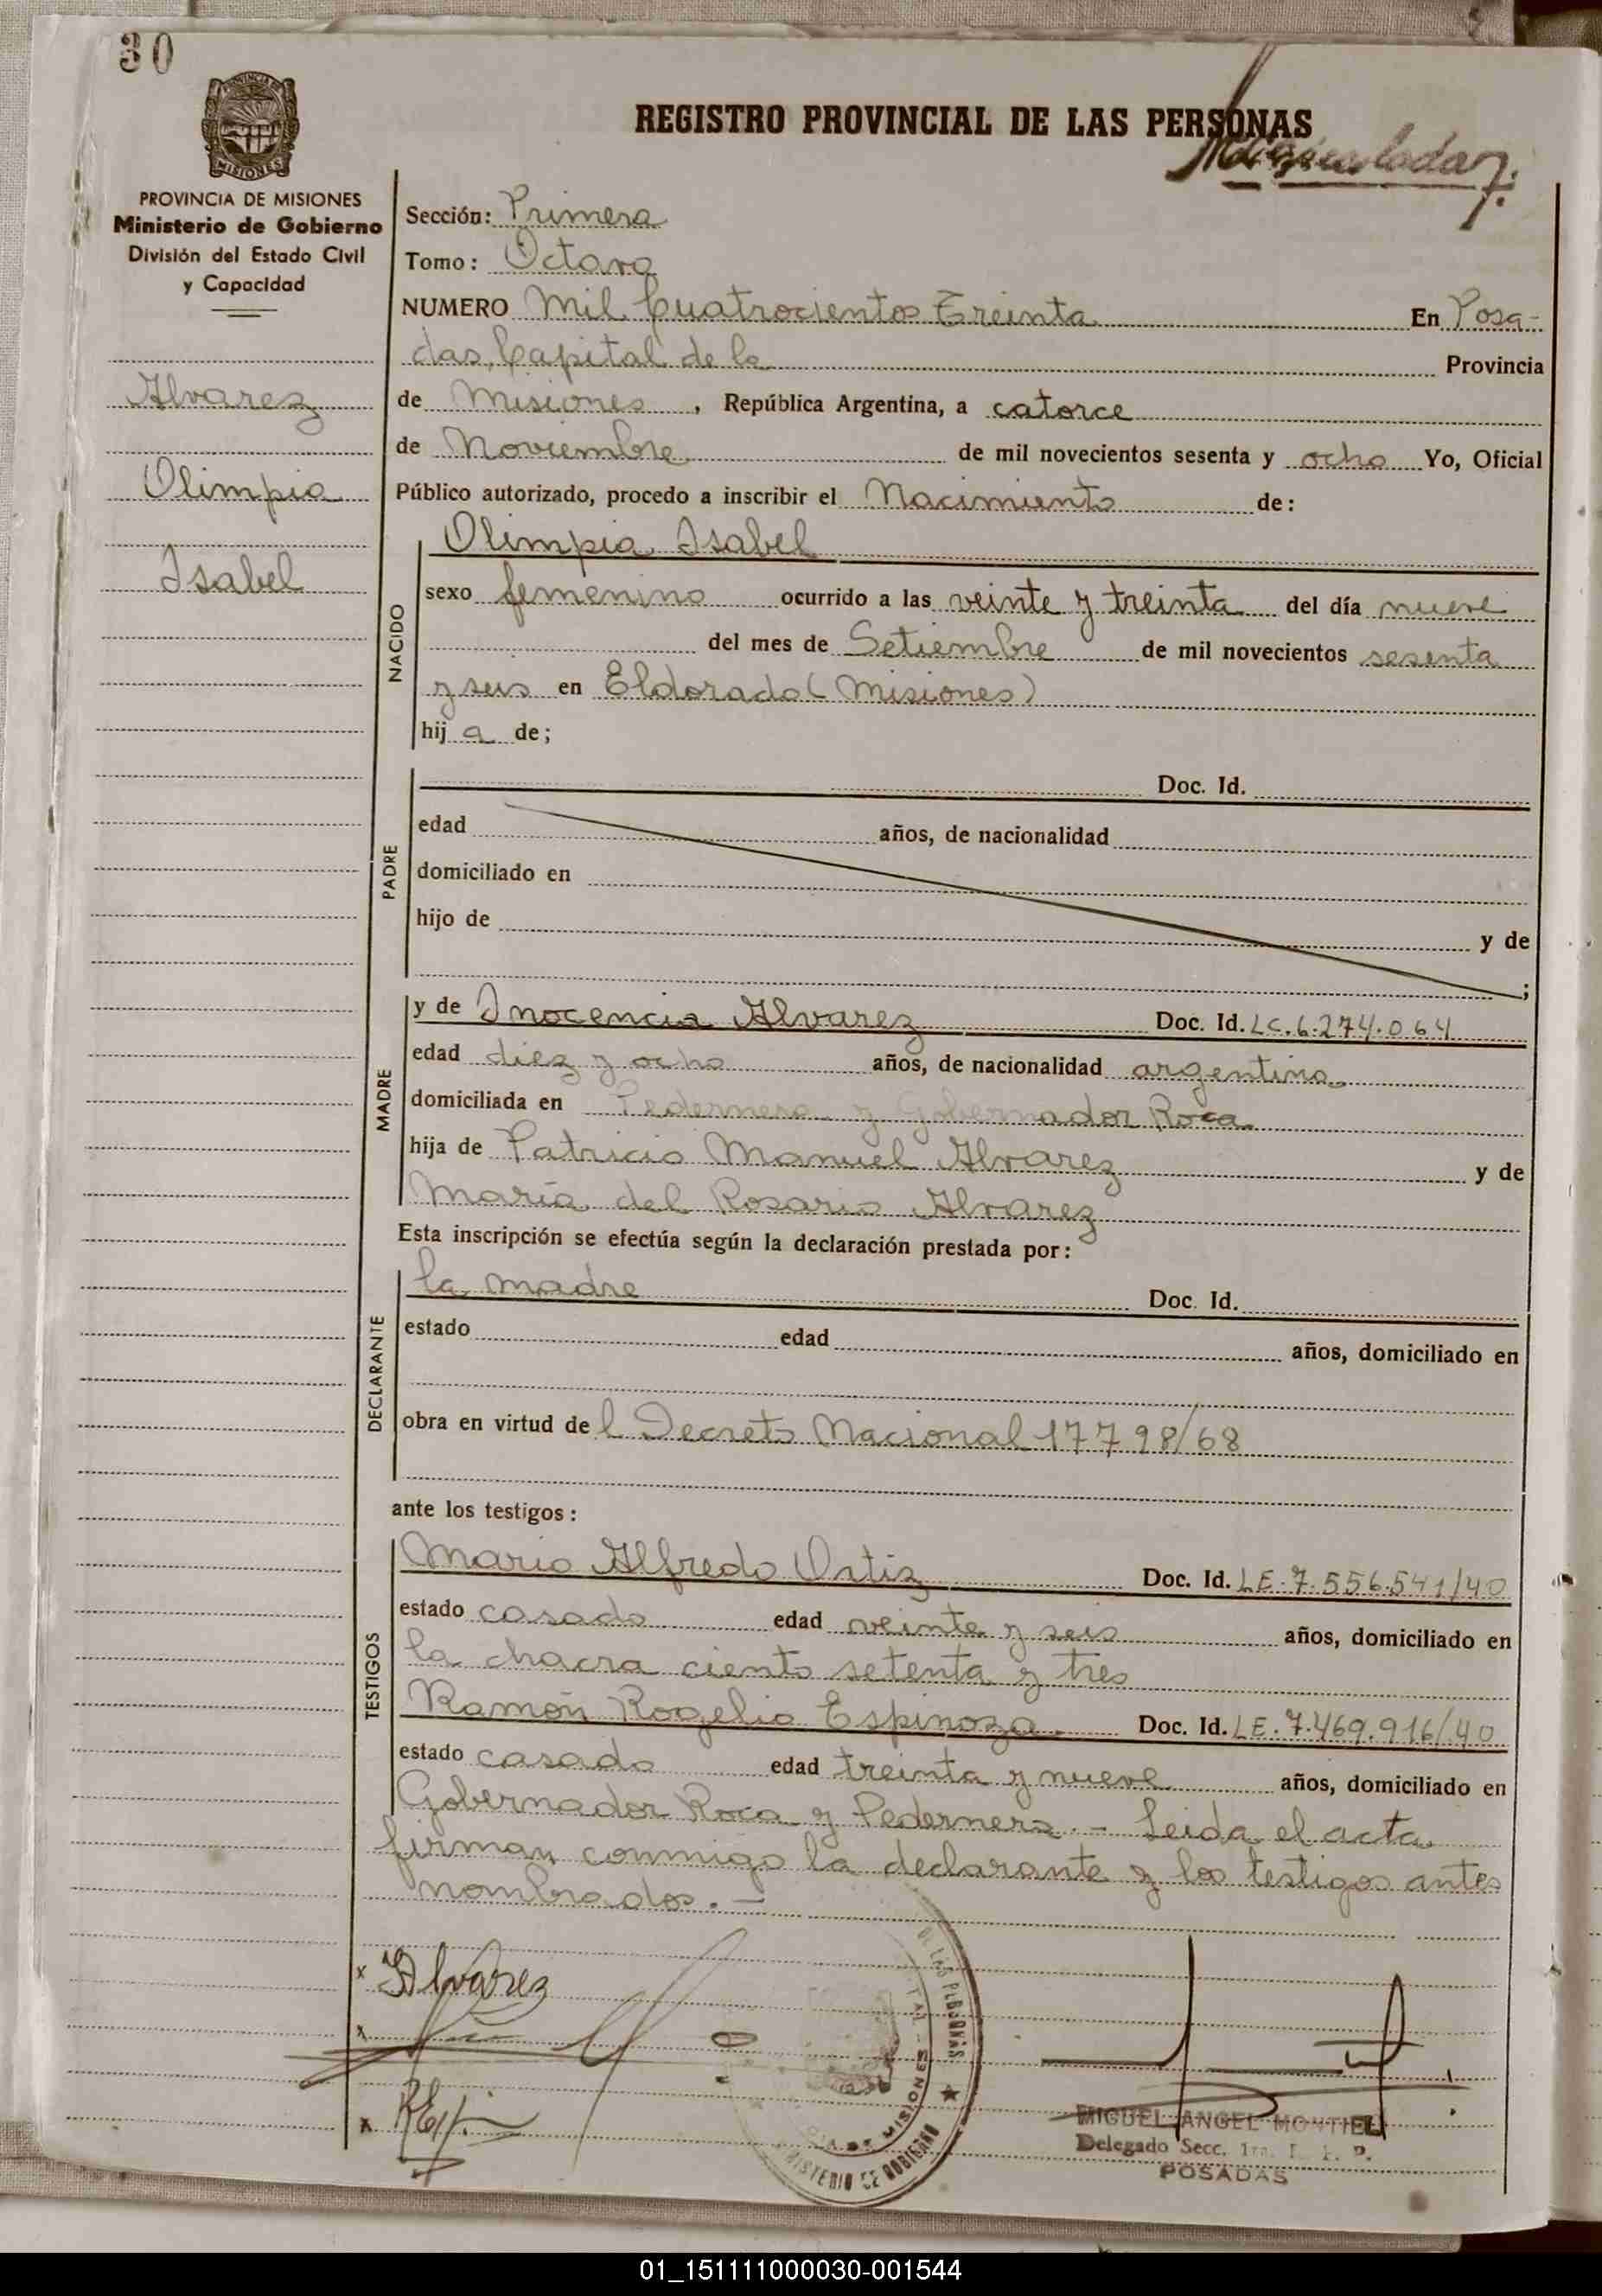 30
PROVINCIA DE MISIONES
Ministerio de Gobierno
División del Estado Civil
y Capacidad
Alvarez
Olimpia
Isabel
REGISTRO PROVINCIAL DE LAS PERSONAS
Sección: Primera
Tomo: Octavo
NUMERO Mil Cuatrocientos Treinta En Posa-
das, Capital de la Provincia
de Misiones, República Argentina, a catorce
de Noviembre de mil novecientos sesenta y ocho Yo, Oficial
Público autorizado, procedo a inscribir el Nacimiento de:
NACIDO
Olimpia Isabel
sexo femenino ocurrido a las veinte y treinta del día nueve
del mes de Setiembre de mil novecientos sesenta
y seis en Eldorado (Misiones)
hija de;
PADRE
Doc. Id.
edad años, de nacionalidad
domiciliado en
hijo de y de
;
MADRE
y de Inocencia Alvarez Doc. Id. LC. 6.274.064
edad diez y ocho años, de nacionalidad argentina
domiciliada en Pedernera y Gobernador Roca
hija de Patricio Manuel Alvarez y de
María del Rosario Alvarez
Esta inscripción se efectúa según la declaración prestada por:
DECLARANTE
la madre Doc. Id.
estado edad años, domiciliado en
obra en virtud del Decreto Nacional 17798/68
ante los testigos:
TESTIGOS
Mario Alfredo Ortiz Doc. Id. LE. 7.556.541/40
estado casado edad veinte y seis años, domiciliado en
la chacra ciento setenta y tres
Ramón Rogelio Espinoza Doc. Id. LE. 7.469.916/40
estado casado edad treinta y nueve años, domiciliado en
Gobernador Roca y Pedernera. - Leida el acta
firman conmigo la declarante y los testigos antes
nombrados. -
x Alvarez
x
x
MIGUEL ANGEL MONTIEL
Delegado Secc. 1ra. R. P. P.
POSADAS
01_151111000030-001544